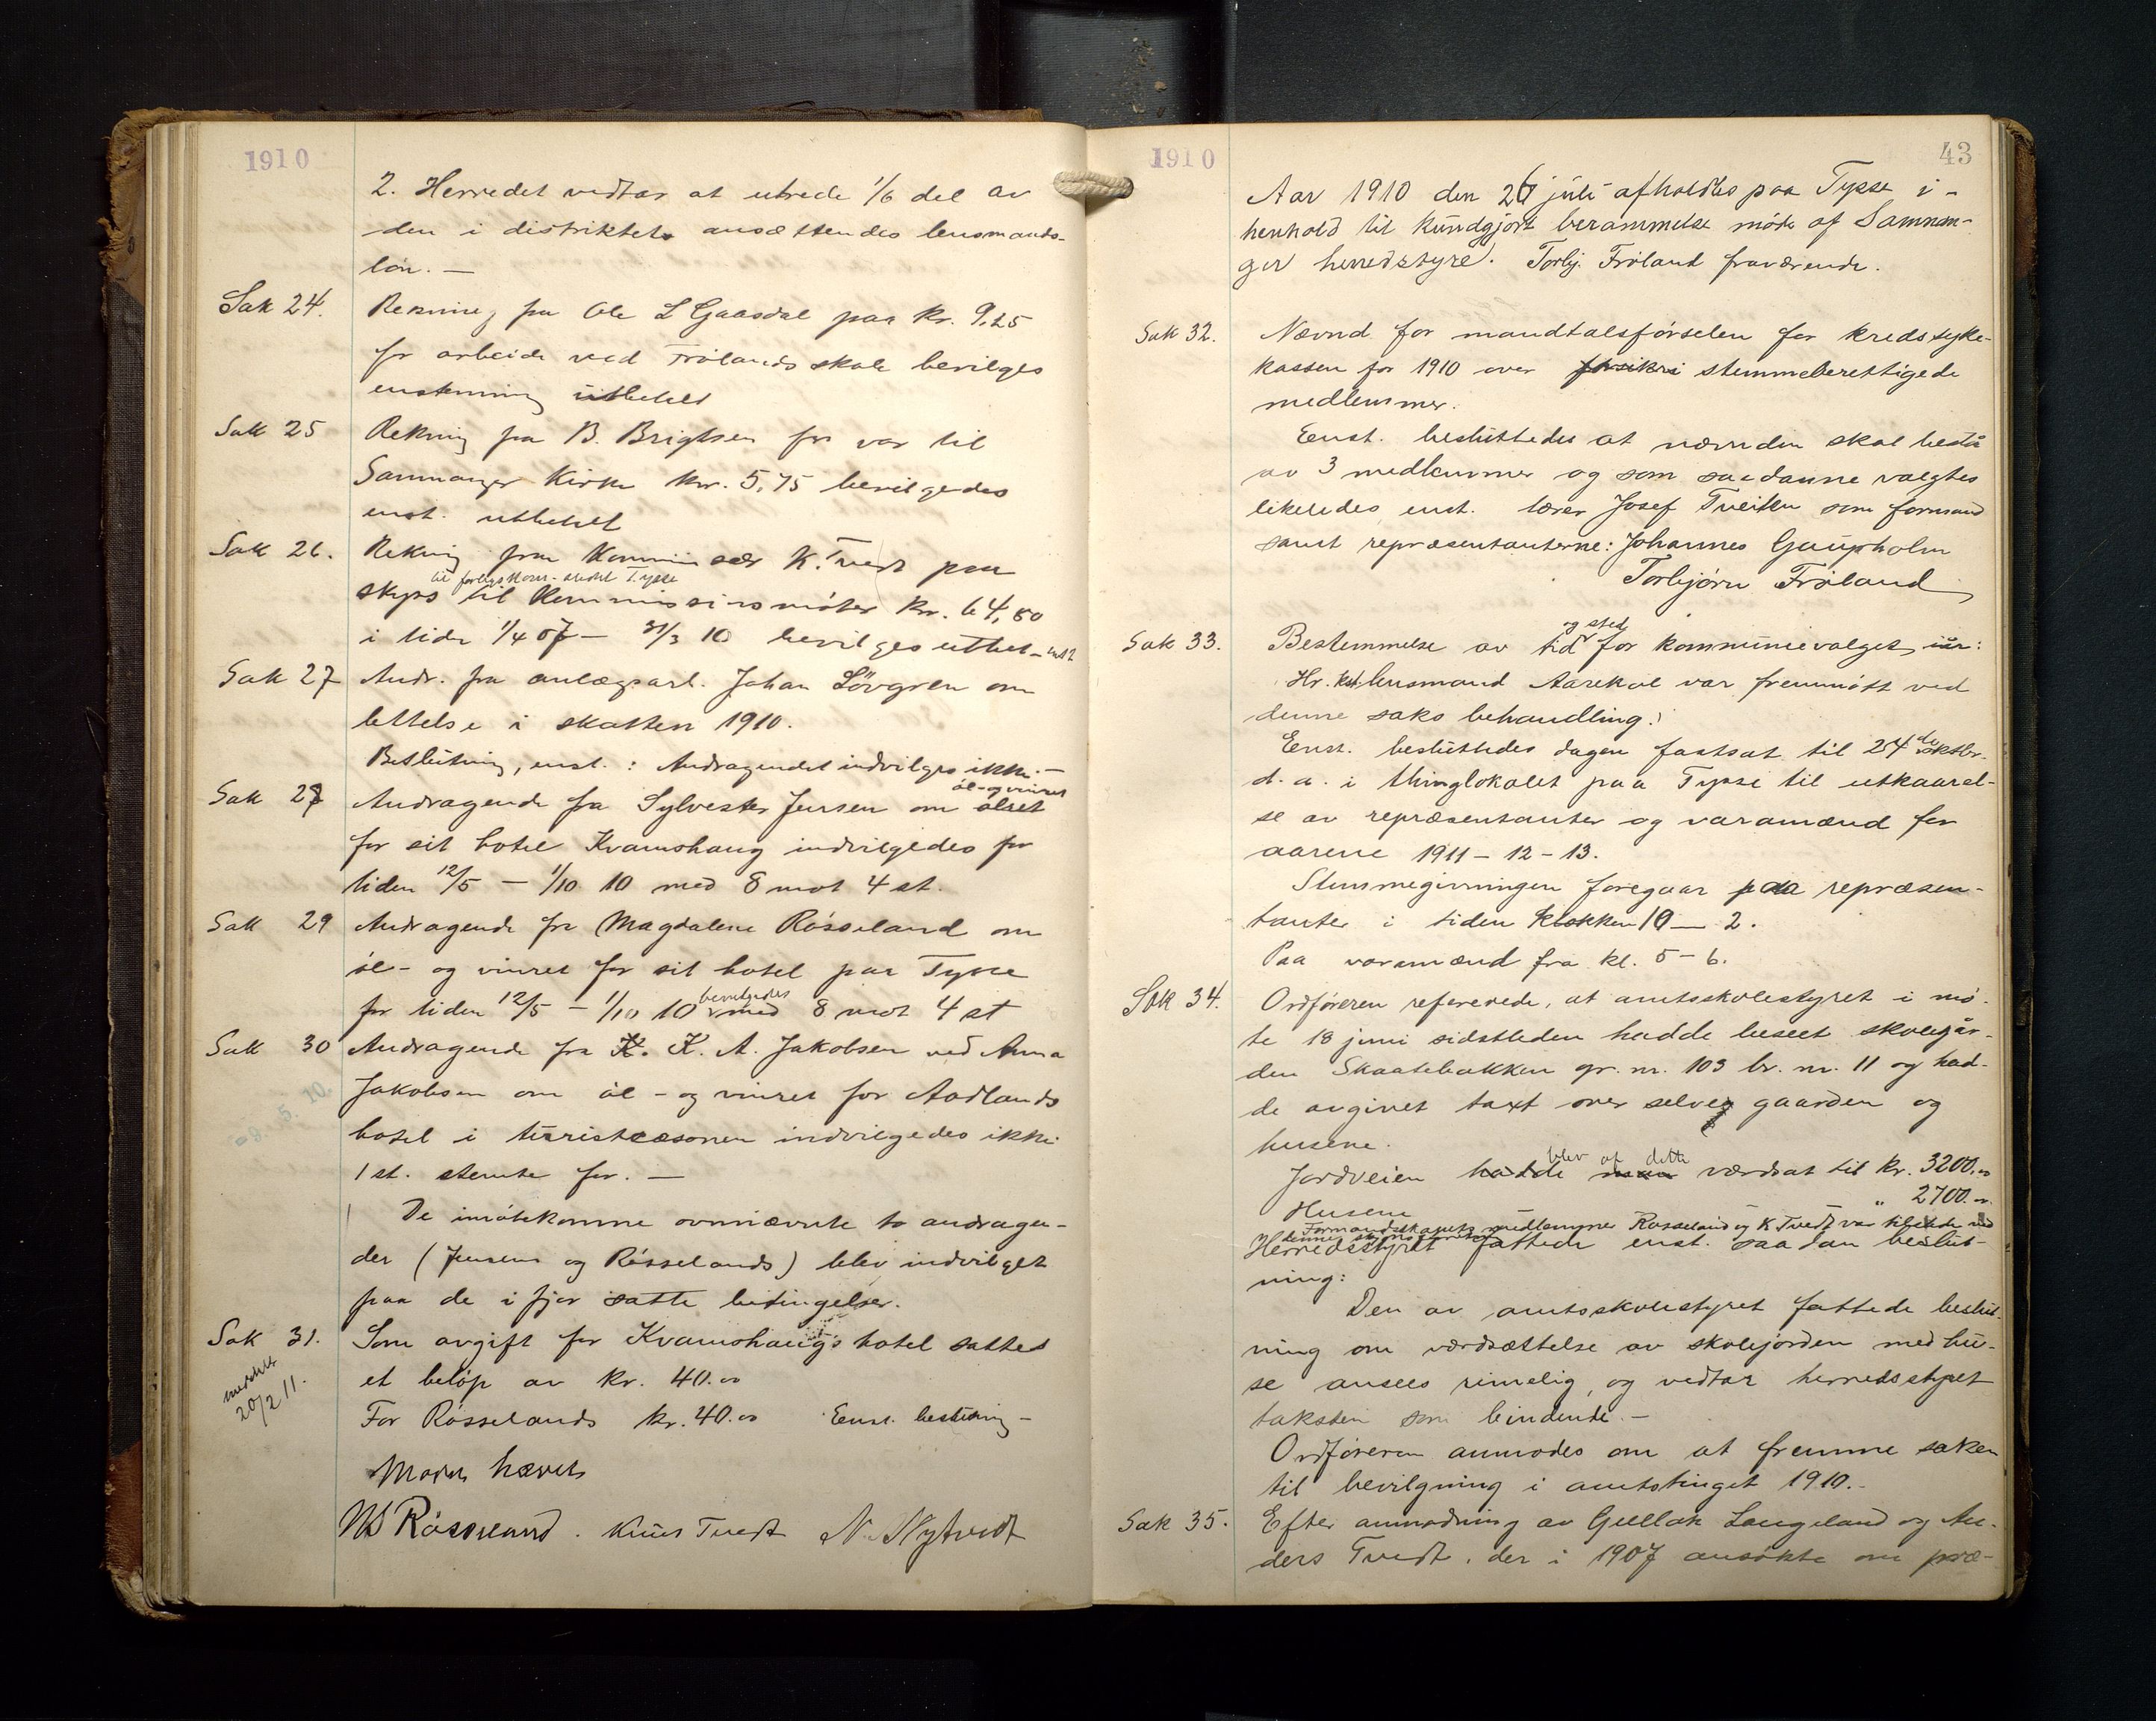 1910
2. Herredet vedtar at utrede 1/6 del av
den i distriktets ansættendes lensmands-
løn. —
Sak 24. Rekning fra Ole L Gaasdal paa kr. 9,25
for arbeide ved Frølands skole bevilges
enstemmig utbetalt
Sak 25 Rekning fra B. Brigtsen for var til
Samnanger Kirke kr. 5,75 bevilgedes
enst. utbetalt
Sak 26. Rekning fra Kommissær K. Tvedt paa
til forligskom.- Tysse
skyss til Kommissionsmøter kr. 64,80
i tiden 1/4 07 — 31/3 10 bevilges utbet- enst
Sak 27 Andr. fra anlægsarb. Johan Lövgren om
lettelse i skatten 1910.
Beslutning, enst.: Andragendet indvilges ikke. —
øl-og vinret
Sak 28 Andragende fra Sylvester Jensen om ølret
for sit hotel Kvamshaug indvilgedes for
tiden 12/5 — 1/10 10 med 8 mot 4 st.
Sak 29 Andragende fra Magdalene Røsseland om
øl- og vinret for sit hotel paa Tysse
for tiden 12/5 — 1/10 10 bevilgedes med 8 mot 4 st
Sak 30 Andragende fra K. K. A. Jakobsen ved Anna
Jakobsen om øl- og vinret for Aadlands
hotel i turistcæsonen indvilgedes ikke
1 st. stemte for. —
De imøtekomne ovnnævnte to andragen-
der (Jensens og Røsselands) blev indvilget
paa de i fjor satte betingelser.
Sak 31. Som avgift for Kvamshaugs hotel sattes
20/2 11.
et beløp av kr. 40.00
For Røsselands kr. 40.00 Enst. beslutning —
M Røsseland. Knut Tvedt N. Nytvedt
1910
43
Aar 1910 den 26 juli afholdtes paa Tysse i-
henhold til kundgjort berammelse møde af Samnan-
ger herredstyre. Torbj. Frøland fraværende.
Sak 32. Nævnd for mandtalsførselen for kredssyke-
kassen for 1910 over forsikri stemmeberettigede
medlemmer.
Enst. besluttedes at nævnden skal bestå
av 3 medlemmer og som saadanne valgtes
likeledes enst. lærer Josef Tveiten som formand
samt repræsentanterne: Johannes Gaupholm
Torbjørn Frøland
og sted
Sak 33. Bestemmelse av tid for kommunevalget iår:
Hr. kst. lensmand Aarekol var fremmøtt ved
denne saks behandling.
Enst. besluttedes dagen fastsat til 24de oktbr.
d. a. i thinglokalet paa Tysse til utkaarel-
se av repræsentanter og varamænd for
aarene 1911 — 12 — 13.
Stemmegivningen foregaar paa repræsen-
tanter i tiden klokken 10 — 2.
Paa varamænd fra kl. 5 — 6.
Sak 34. Ordføreren refererede, at amtsskolestyret i mø-
te 18 juni sidstleden hadde beseet skolegår-
den Skaatebakken gr. nr. 103 br. nr. 11 og had-
de avgivet taxt over selve gaarden og
husene.
blev af dette
Jordveien hadde man værdsat til kr. 3200.00
Husene " 2700.00
Formandskapets medlemmer Røsseland og K Tvedt var tilstede ved
Herredsstyret fattede enst. saadan beslut-
ning:
Den av amtsskolestyret fattede beslut-
ning om værdsættelse av skolejorden med hu-
se ansees rimelig, og vedtar herredsstyret
taksten som bindende. —
Ordføreren anmodes om at fremme saken
til bevilgning i amtstinget 1910. —
Sak 35. Efter anmodning av Gullak Langeland og An-
ders Tvedt, der i 1907 ansøkte om præ-